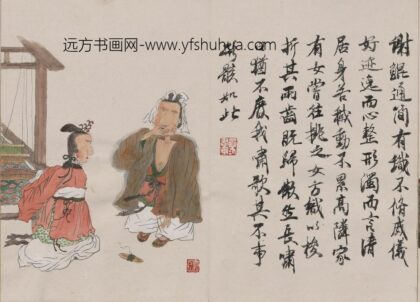 远方书画网-www.yfshuhua.com
謝鯤通簡有識不脩威儀
好迹逸而心整形濁而言清
居身若穢動不累高隣家
有女嘗往挑之女方織以梭
折其兩齒既歸傲然長嘯
曰猶不廢我嘯歌其不事
形骸如此